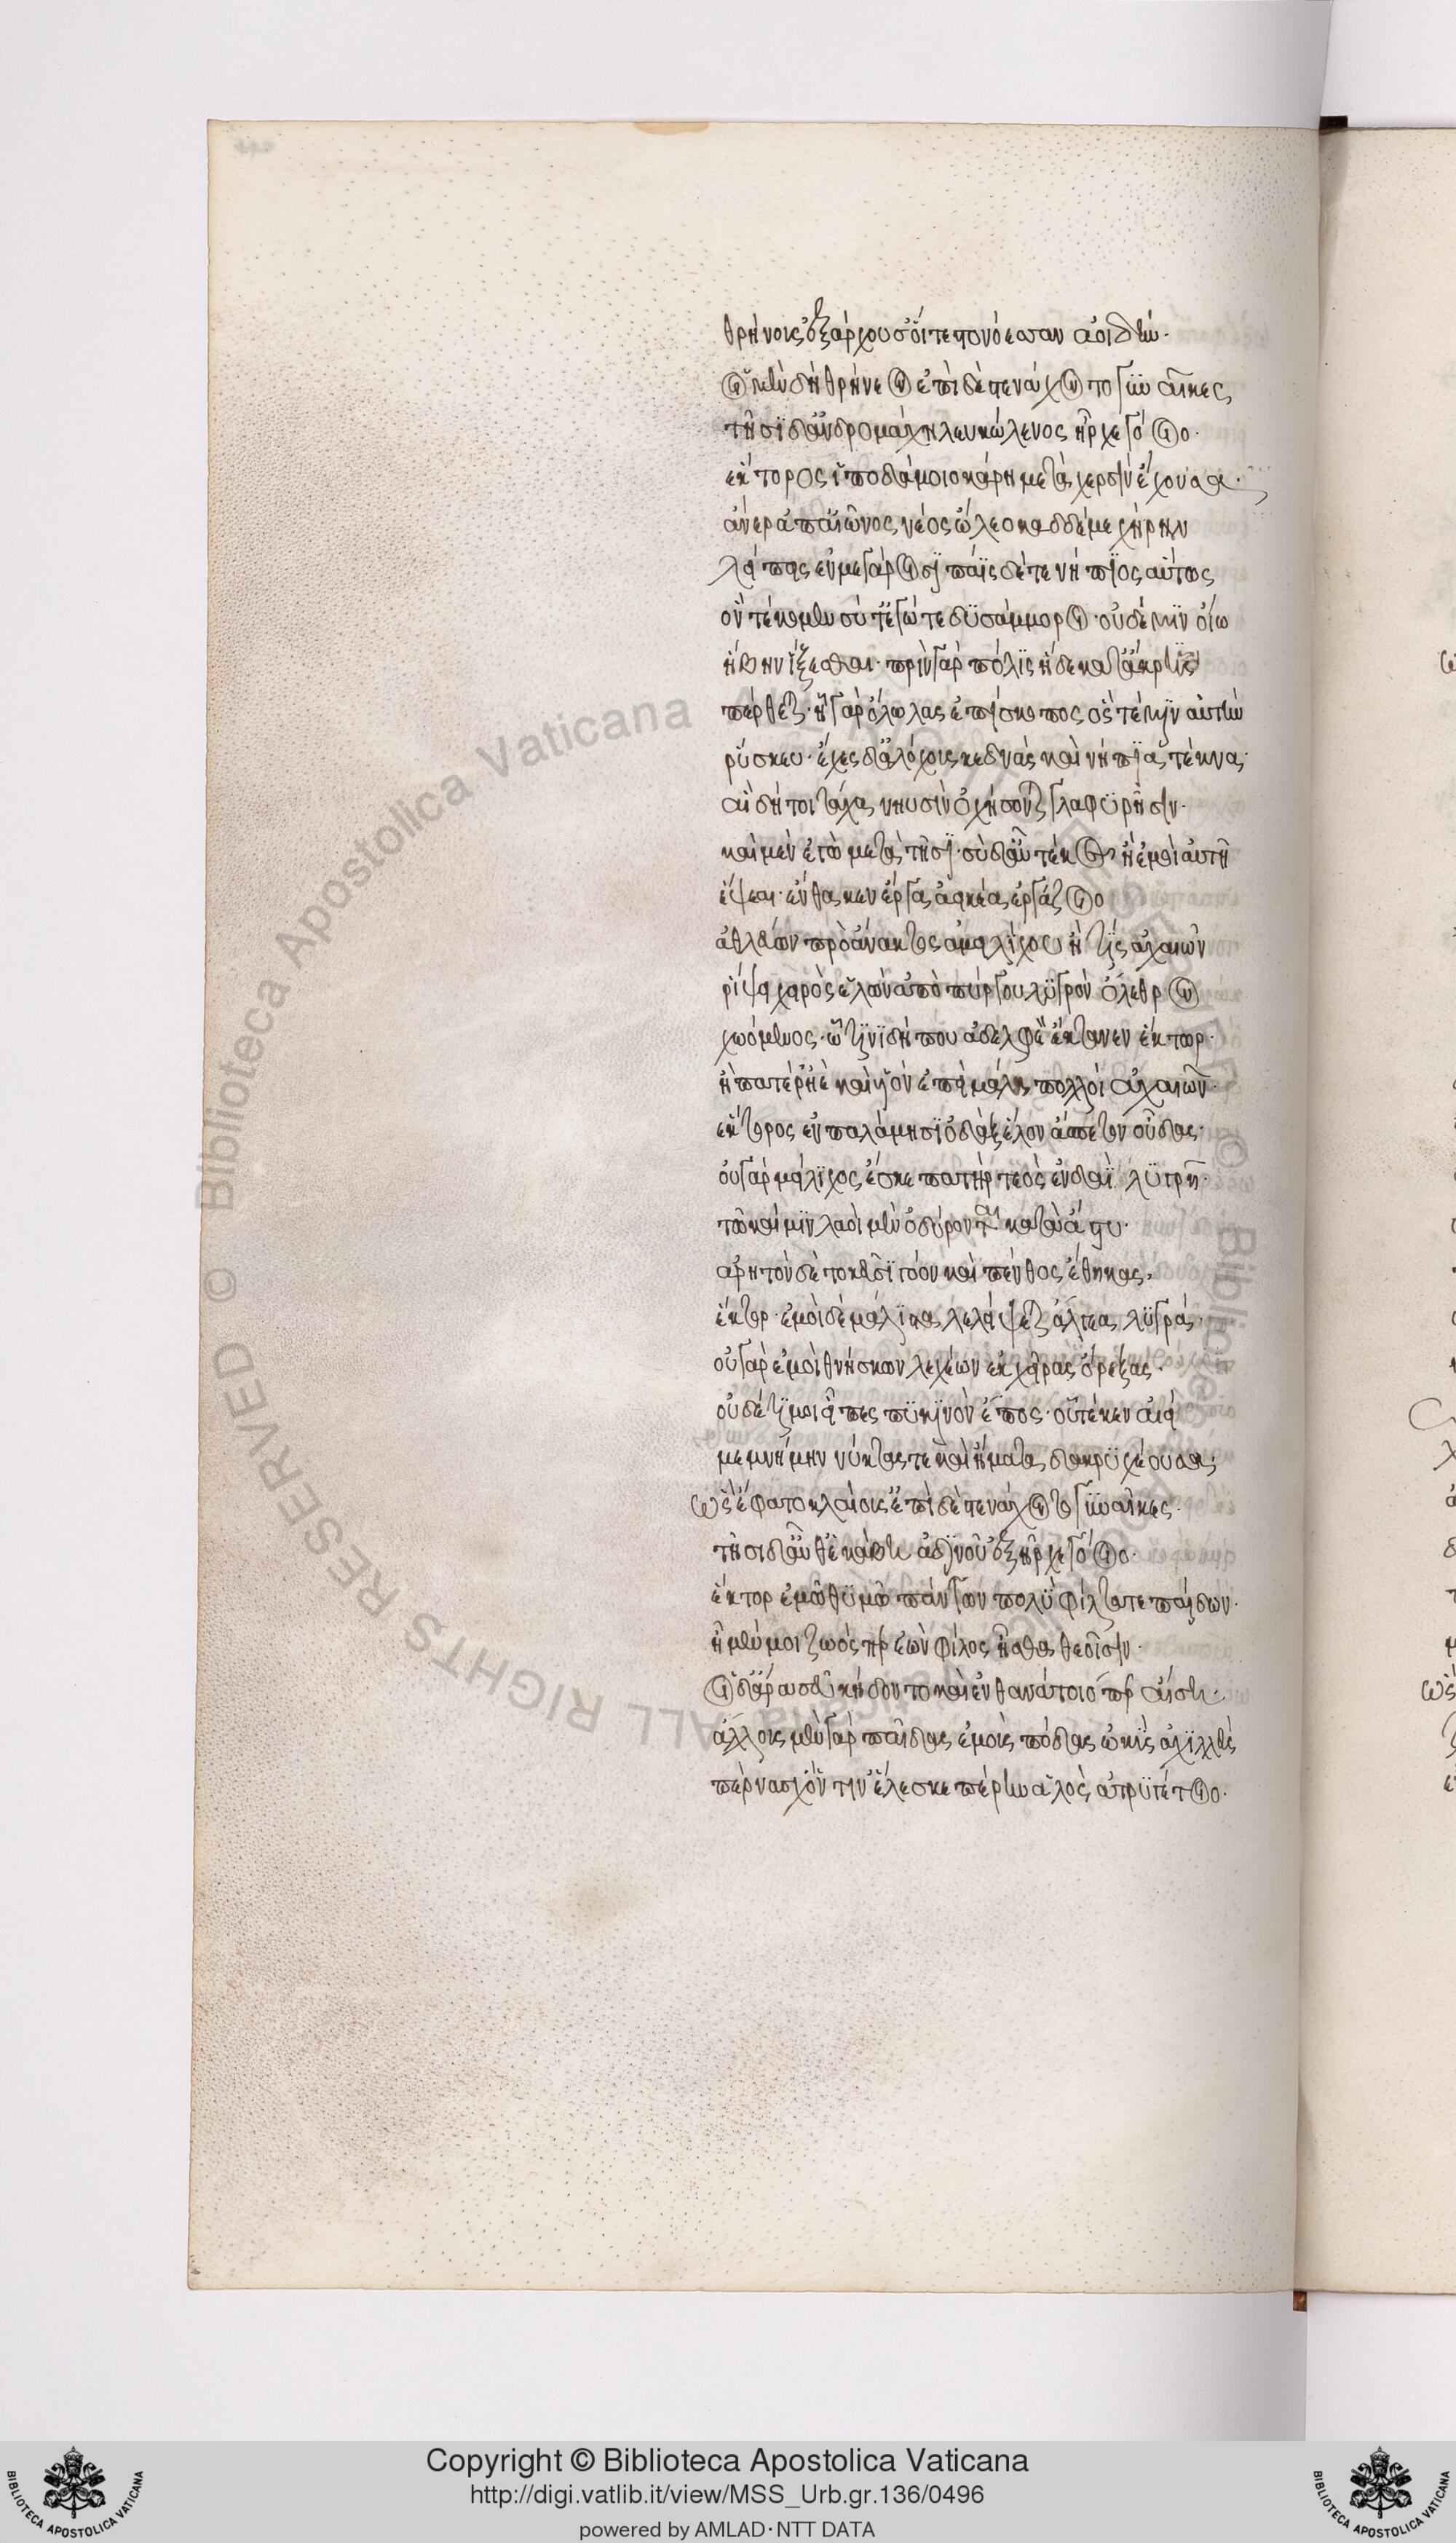 θρήνοις ἐξάρχους οἵ τε στονόεσσαν ἀοιδὴν·
οἳ μὲν δὴ θρήνεον ἐπὶ δὲ στενάχοντο γυναῖκες,
τῆσι δ' ἀνδρομάχη λευκώλενος ἦρχε γόοιο·
ἕκτορος ἱπποδάμοιο κάρη μετὰ χερσὶν ἔχουσα·
ἄνερ ἀπ' αἰῶνος νέος ὤλεο καδδέ με χήρην
λείπεις ἐν μεγάροισι πάϊς δέ τε νήπιος αὔτως
ὃν τέκομεν σύ τ' ἐγώ τε δυσάμμοροι· οὐδέ μιν οἴω
ἥβην ἵξεσθαι· πρὶν γὰρ πόλις ἥδε κατ' ἄκρης
πέρσεται· ἦ γὰρ ὄλωλας ἐπίσκοπος ὅς τέ μιν αὐτὴν
ῥύσκευ· ἔχες δ' ἀλόχους κεδνὰς καὶ νήπια τέκνα·
αἳ δή τοι τάχα νηυσὶν ὀχήσονται γλαφυρῇσιν·
καὶ μὲν ἐγὼ μετὰ τῇσι· σὺ δ' αὖ τέκος ἢ ἐμοὶ αὐτῇ
ἕψεαι· ἔνθα κεν ἔργα ἀεικέα ἐργάζοιο
ἀθλεύων πρὸ ἄνακτος ἀμειλίχου ἤ τις ἀχαιῶν
ῥίψει χειρὸς ἑλὼν ἀπὸ πύργου λυγρὸν ὄλεθρον
χωόμενος· ᾧ τινι δή που ἀδελφεὸν ἔκτανεν ἕκτωρ·
ἢ πατέρ' ἠὲ καὶ υἱὸν ἐπεὶ μάλα πολλοὶ ἀχαιῶν·
ἕκτορος ἐν παλάμησι ὀδὰξ ἕλον ἄσπετον οὖδας·
οὐ γὰρ μείλιχος ἔσκε πατὴρ τεὸς ἐν δαῒ λυγρῇ·
τῷ καί μιν λαοὶ μὲν ὀδύρονται κατὰ ἄστυ·
ἀρητὸν δὲ τοκεῦσι γόον καὶ πένθος ἔθηκας,
ἕκτορ· ἐμοὶ δὲ μάλιστα λελείψεται ἄλγεα λυγρά·
οὐ γὰρ ἐμοὶ θνήσκων λεχέων ἐκ χεῖρας ὄρεξας·
οὐδέ τί μοι εἶπες πυκινὸν ἔπος· οὗ τέ κεν αἰεὶ
μεμνήμην νύκτας τε καὶ ἤματα δακρυχέουσα;
ὣς ἔφατο κλαίουσ' ἐπὶ δὲ στενάχοντο γυναῖκες·
τῇσι δ' αὖθ' ἑκάβη ἀδινοῦ ἐξῆρχε γόοιο·
ἕκτορ ἐμῷ θυμῷ πάντων πολὺ φίλτατε παίδων·
ἦ μέν μοι ζωός περ ἐὼν φίλος ἦσθα θεοῖσιν·
οἳ δ' ἄρα σεῦ κήδοντο καὶ ἐν θανάτοιό περ αἴσῃ·
ἄλλους μὲν γὰρ παῖδας ἐμοὺς πόδας ὠκὺς ἀχιλλεὺς
πέρνασχ' ὅν τιν' ἕλεσκε πέρην ἁλὸς ἀτρυγέτοιο·
Copyright © Biblioteca Apostolica Vaticana
http://digi.vatlib.it/view/MSS_Urb.gr.136/0496
powered by AMLAD·NTT DATA